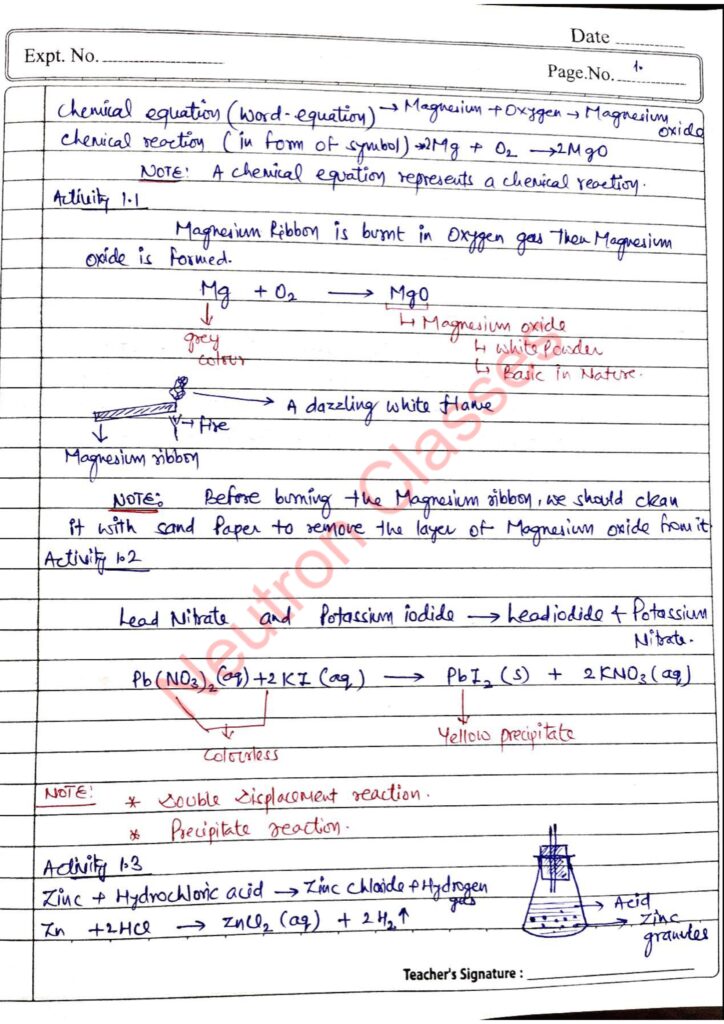 Date
Expt. No.
Page.No. 1.
Chemical equation (word-equation) → Magnesium + Oxygen → Magnesium oxide
Chemical reaction (in form of symbol) → 2Mg + O₂ → 2MgO
NOTE: A chemical equation represents a chemical reaction.
Activity 1.1
Magnesium Ribbon is burnt in Oxygen gas then Magnesium
oxide is formed.
Mg + O₂ → MgO
↳ Magnesium oxide
grey
colour
↳ White Powder
↳ Basic in Nature.
→ A dazzling white flame
→ fire
Magnesium ribbon
NOTE: Before burning the Magnesium ribbon, we should clean
it with sand Paper to remove the layer of Magnesium oxide from it
Activity 1.2
Lead Nitrate and Potassium iodide → Lead iodide + Potassium
Nitrate.
Pb(NO₃)₂(aq) + 2KI(aq) → PbI₂(s) + 2KNO₃(aq)
Colourless
Yellow precipitate
NOTE: * Double Displacement reaction.
* Precipitate reaction.
Activity 1.3
Zinc + Hydrochloric acid → Zinc chloride + Hydrogen
gas
Zn + 2HCl → ZnCl₂(aq) + 2H₂↑
Acid
Zinc
granules
Teacher's Signature :
Neutron Classes